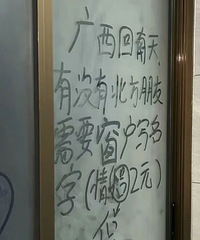 广西回南天
有没有北方朋友
需要窗户写名
字(情侣2元)